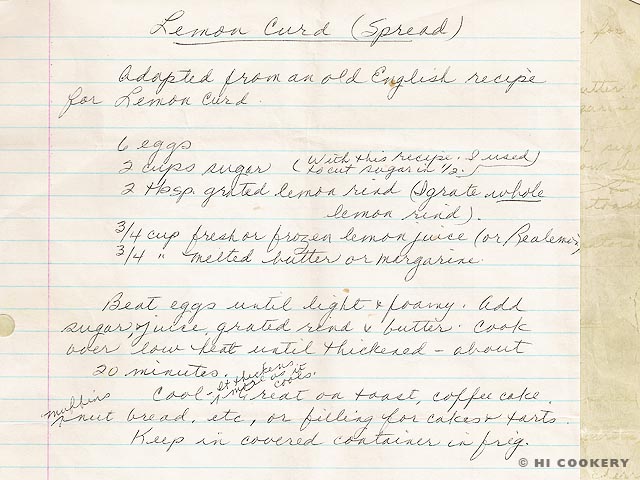 Lemon Curd (Spread)
Adapted from an old English recipe
for Lemon Curd.
6 eggs
2 cups sugar (With this recipe. I used
to cut sugar in 1/2.)
2 tbsp. grated lemon rind (I grate whole
lemon rind).
3/4 cup fresh or frozen lemon juice (or Realemon)
3/4 " melted butter or margarine.
Beat eggs until light & foamy. Add
sugar, juice, grated rind & butter. Cook
over low heat until thickened - about
20 minutes.
Cool - it thickens more as it cools. Great on toast, coffee cake,
muffins, nut bread, etc, or filling for cakes & tarts.
Keep in covered container in frig.
© HI COOKERY